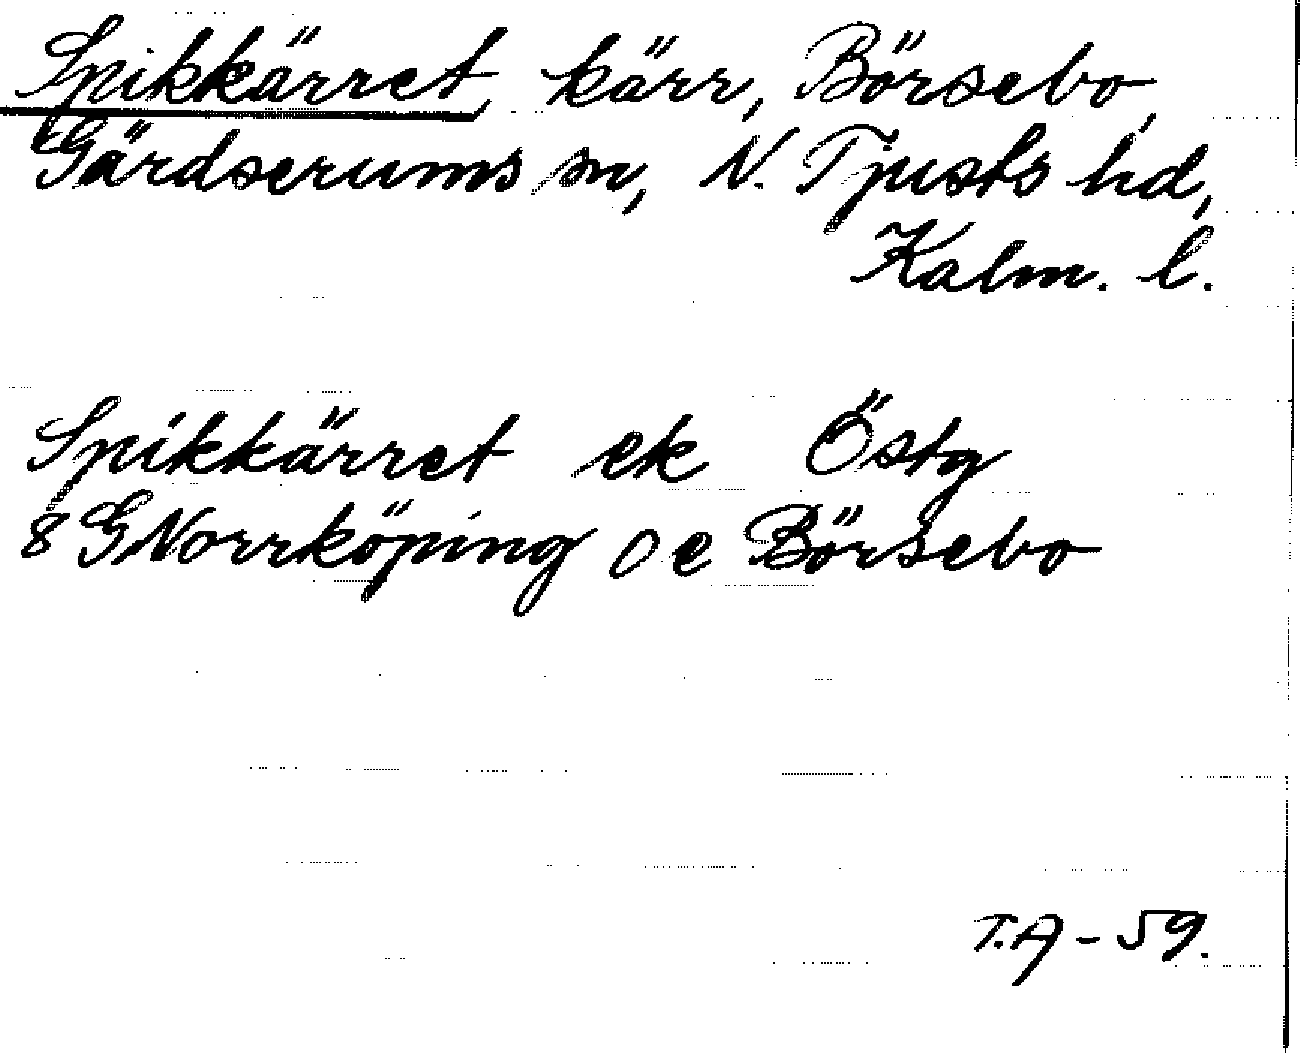 Spikkärret, kärr, Börsebo,
Gärdserums sn, N. Tjusts hd,
Kalm. l.
Spikkärret ek Östg
8 G Norrköping 0 e Börsebo
T.A - 59.